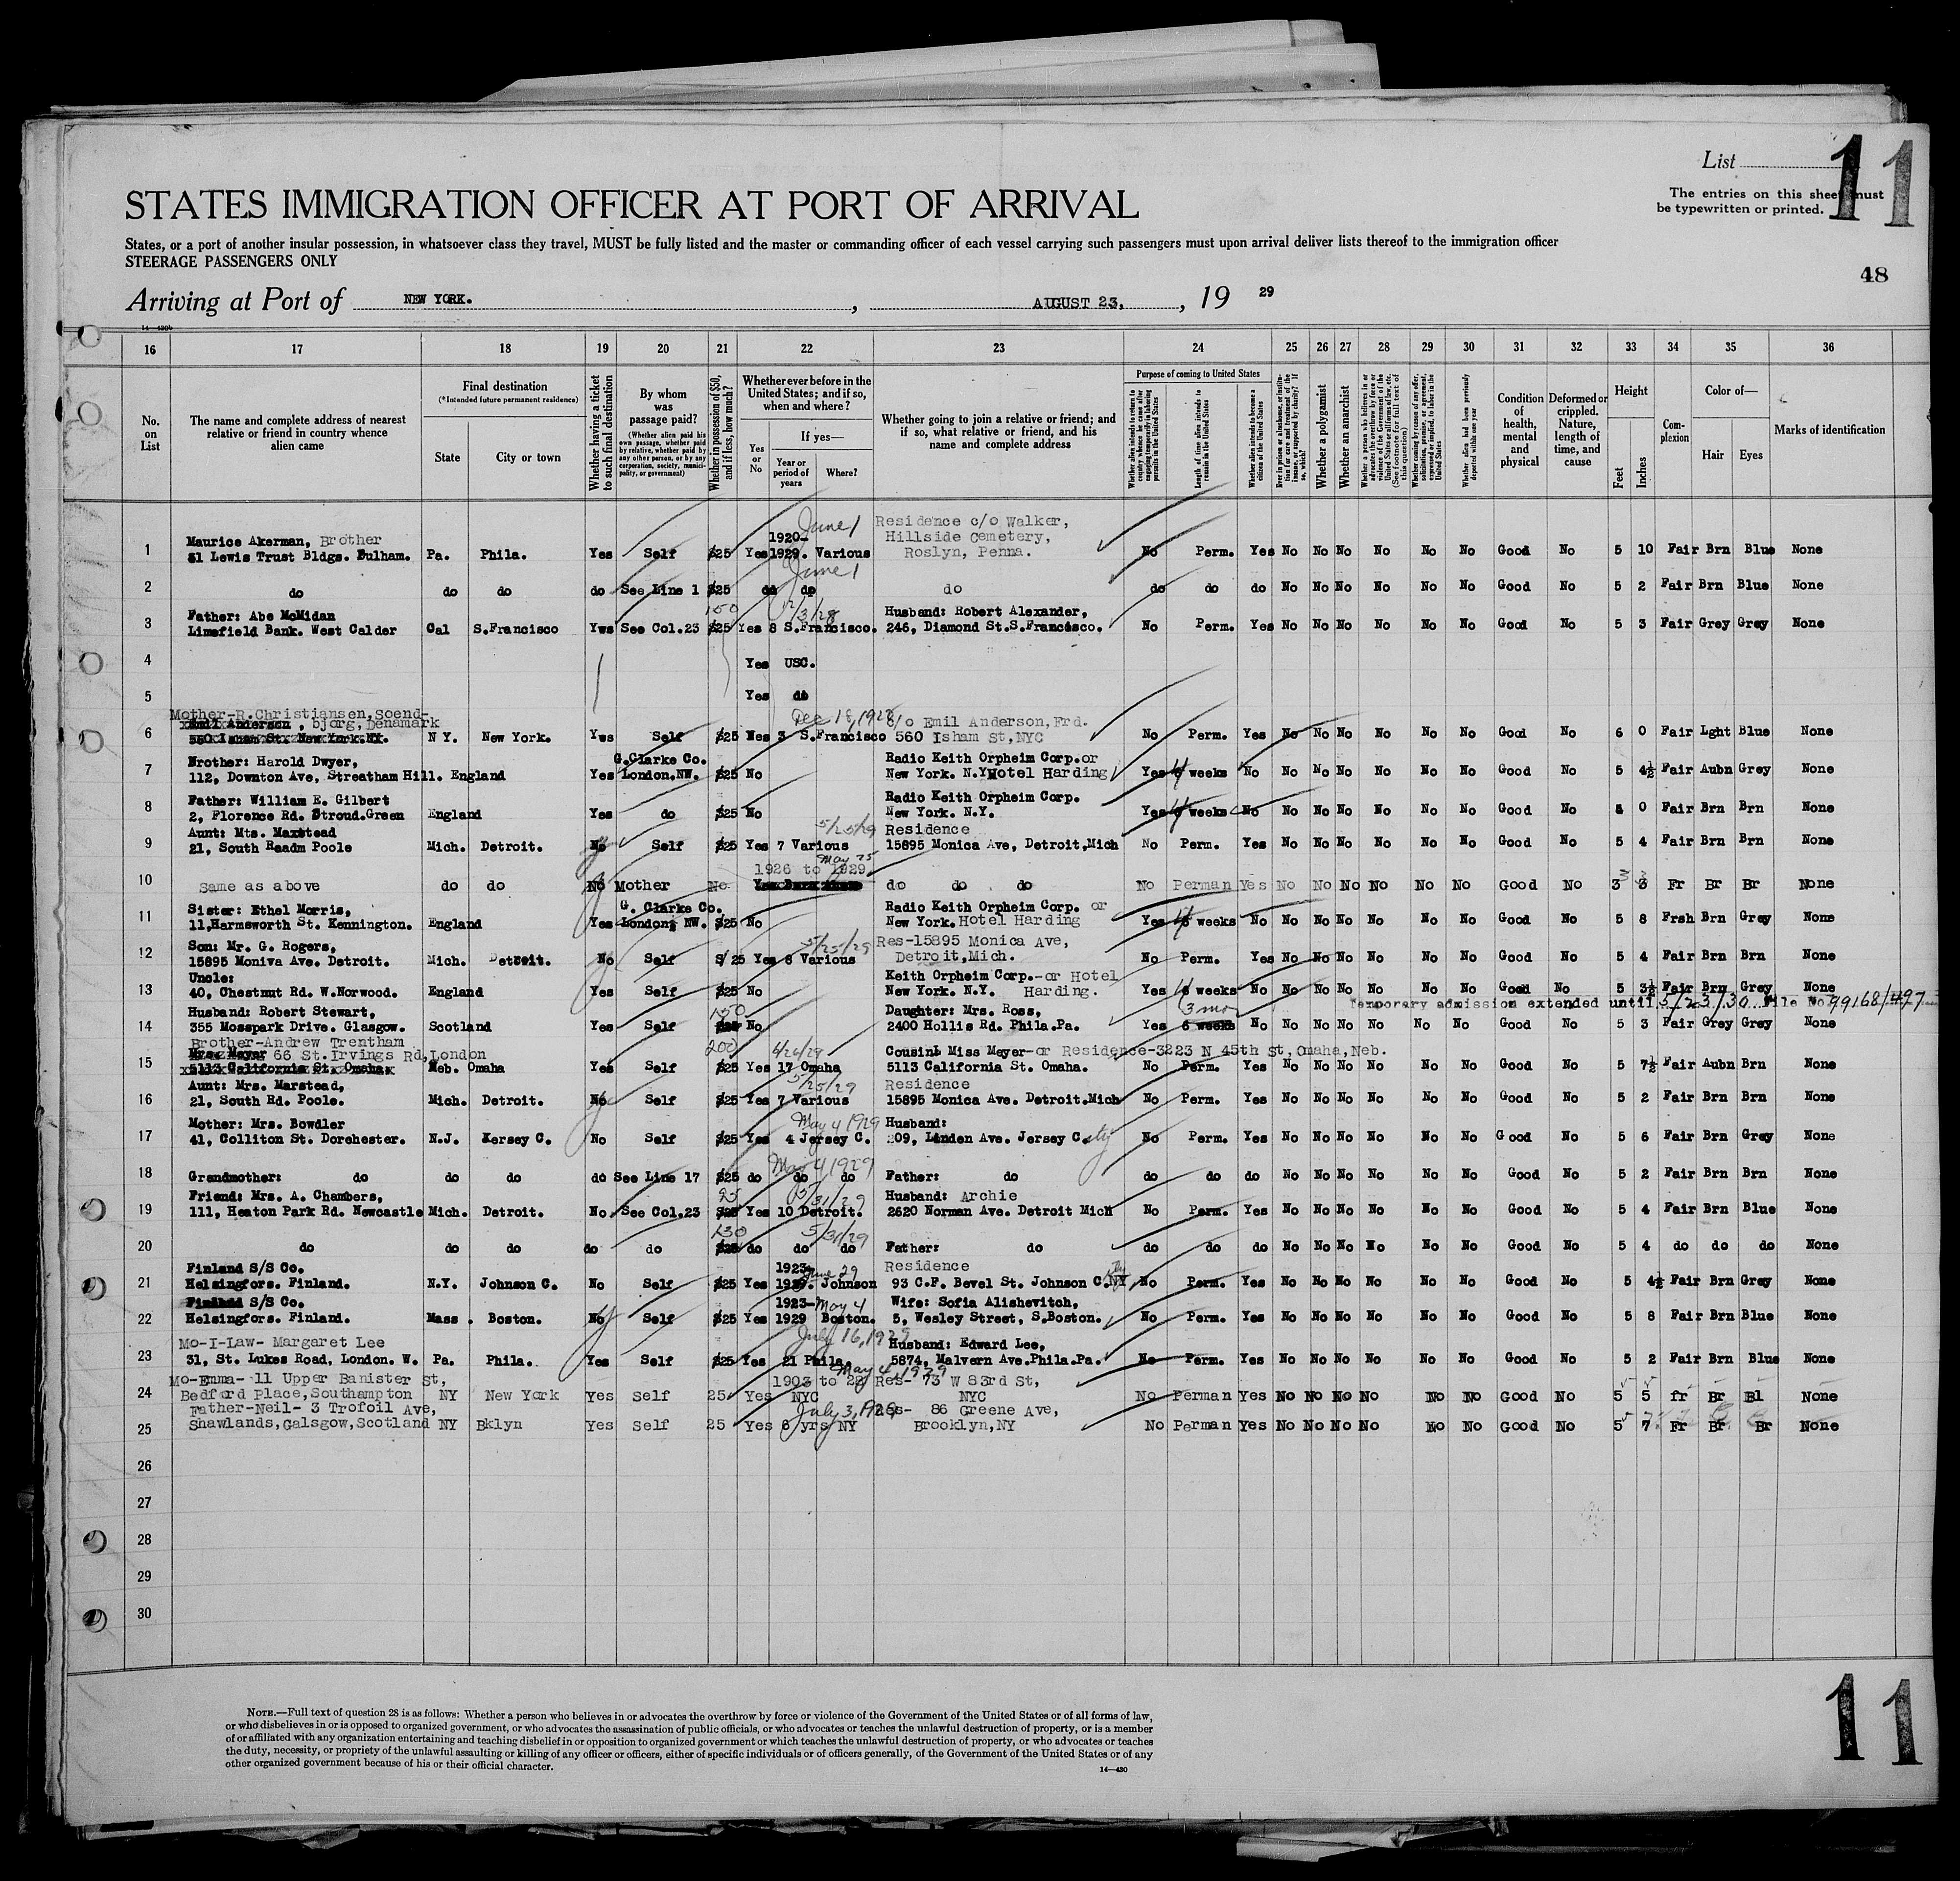 List 11
The entries on this sheet must
be typewritten or printed.
STATES IMMIGRATION OFFICER AT PORT OF ARRIVAL
States, or a port of another insular possession, in whatsoever class they travel, MUST be fully listed and the master or commanding officer of each vessel carrying such passengers must upon arrival deliver lists thereof to the immigration officer
STEERAGE PASSENGERS ONLY
48
Arriving at Port of NEW YORK. , AUGUST 23, , 19 29
16 17 18 19 20 21 22 23 24 25 26 27 28 29 30 31 32 33 34 35 36
No. on List
The name and complete address of nearest relative or friend in country whence alien came
Final destination
(*Intended future permanent residence)
State
City or town
Whether having a ticket to such final destination
By whom was passage paid?
(Whether alien paid his own passage, whether paid by relative, whether paid by any other person, or by any corporation, society, municipality, or government)
Whether in possession of $50, and if less, how much?
Whether ever before in the United States; and if so, when and where?
Yes or No
If yes—
Year or period of years
Where?
Whether going to join a relative or friend; and if so, what relative or friend, and his name and complete address
Purpose of coming to United States
Whether alien intends to return to country whence he came after engaging temporarily in laboring pursuits in the United States
Length of time alien intends to remain in the United States
Whether alien intends to become a citizen of the United States
Whether a polygamist
Whether an anarchist
Condition of health, mental and physical
Deformed or crippled. Nature, length of time, and cause
Height
Feet
Inches
Complexion
Color of—
Hair
Eyes
Marks of identification
1 Maurice Akerman, Brother
81 Lewis Trust Bldgs. Fulham. Pa. Phila. Yes Self $25 Yes 1920-1929. June 1 Various Residence c/o Walker, Hillside Cemetery, Roslyn, Penna. No Perm. Yes No No No No No No Good No 5 10 Fair Brn Blue None
2 do do do do See Line 1 $25 do do June 1 do do do do No No No No No No Good No 5 2 Fair Brn Blue None
3 Father: Abe McMidan
Limefield Bank. West Calder Cal S.Francisco Yws See Col.23 150 $25 Yes 8 S.Francisco. Husband: Robert Alexander, 246, Diamond St.S.Francisco. No Perm. Yes No No No No No No Good No 5 3 Fair Grey Grey None
4 Yes USC.
5 Yes do
Mother-R.Christiansen,Soend-
bjorg, Denamark
6 560 Isham St. New York.NY. N Y. New York. Yws Self $25 Dec 18, 1928 3 S.Francisco c/o Emil Anderson, Frd. 560 Isham St, NYC No Perm. Yes No No No No No No Good No 6 0 Fair Lght Blue None
7 Brother: Harold Dwyer,
112, Downton Ave, Streatham Hill. England Yes G.Clarke Co. London.NW. $25 No Radio Keith Orpheim Corp.or New York. N.Y. Hotel Harding Yes 4 weeks No No No No No No No Good No 5 4½ Fair Aubn Grey None
8 Father: William E. Gilbert
2, Florence Rd. Stroud.Green England Yes do $25 No Radio Keith Orpheim Corp. New York. N.Y. Yes 4 weeks No No No No No No No Good No 0 Fair Brn Brn None
9 Aunt: Mts. Maxstead
21, South Raadm Poole Mich. Detroit. No Self $25 Yes 7 Various 5/25/29 Residence 15895 Monica Ave, Detroit,Mich No Perm. Yes No No No No No No Good No 5 4 Fair Brn Brn None
10 Same as above do do No Mother No 1926 to 1929 May 25 do do do No Perman Yes No No No No No No Good No 3 3 Fr Br Br None
11 Sister: Ethel Morris,
11,Harmsworth St. Kennington. England Yes G. Clarke Co. London, NW. $25 No Radio Keith Orpheim Corp. or New York. Hotel Harding Yes 4 weeks No No No No No No No Good No 5 8 Frsh Brn Grey None
12 Son: Mr. G. Rogers,
15895 Moniva Ave. Detroit. Mich. Detroit. No Self $/25 Yes 8 Various 5/25/29 Res-15895 Monica Ave, Detroit,Mich. No Perm. Yes No No No No No No Good No 5 4 Fair Brn Brn None
13 Uncle:
40, Chestnut Rd. W.Norwood. England Yes Self $25 No Keith Orpheim Corp.-or Hotel New York. N.Y. Harding. Yes 6 weeks No No No No No No No Good No 5 3½ Fair Brn Grey None
Temporary admission extended until 5/23/30 File No 99168/497
14 Husband: Robert Stewart,
355 Mosspark Drive. Glasgow. Scotland Yes Self 150 No Daughter: Mrs. Ross, 2400 Hollis Rd. Phila.Pa. Yes 3 mo 6 weeks No No No No No No No Good No 5 3 Fair Grey Grey None
Brother-Andrew Trentham
66 St.Irvings Rd,London
15 5113 California St. Omaha. Neb. Omaha Yes Self 200 $25 Yes 17 Omaha 4/26/29 Cousin: Miss Meyer-or Residence-3223 N 45th St, Omaha, Neb. 5113 California St. Omaha. No Perm. Yes No No No No No No Good No 5 7½ Fair Aubn Brn None
16 Aunt: Mrs. Marstead,
21, South Rd. Poole. Mich. Detroit. No Self $25 Yes 7 Various 5/25/29 Residence 15895 Monica Ave. Detroit.Mich No Perm. Yes No No No No No No Good No 5 2 Fair Brn Brn None
17 Mother: Mrs. Bowdler
41, Colliton St. Dorchester. N.J. Jersey C. No Self $25 Yes 4 Jersey C. May 4 1929 Husband: 209, Linden Ave. Jersey City No Perm. Yes No No No No No No Good No 5 6 Fair Brn Grey None
18 Grandmother: do do do do See Line 17 $25 do do do May 4 1929 Father: do do do do No No No No No No Good No 5 2 Fair Brn Brn None
19 Friend: Mrs. A. Chambers,
111, Heaton Park Rd. Newcastle Mich. Detroit. No See Col.23 95 $25 Yes 10 Detroit. 5/31/29 Husband: Archie 2620 Norman Ave. Detroit Mich No Perm. Yes No No No No No No Good No 5 4 Fair Brn Blue None
20 do do do do do 130 $25 do do do 5/31/29 Father: do do do do No No No No No No Good No 5 4 do do do None
21 Finland S/S Co.
Helsingfors. Finland. N.Y. Johnson C. No Self $25 Yes 1923- 1929. Johnson June 29 Residence 93 C.F. Bevel St. Johnson C. NY No Perm. Yes No No No No No No Good No 5 4½ Fair Brn Grey None
22 Finland S/S Co.
Helsingfors. Finland. Mass. Boston. No Self $25 Yes 1923-1929 May 4 Boston. Wife: Sofia Alishevitch, 5, Wesley Street, S.Boston. No Perm. Yes No No No No No No Good No 5 8 Fair Brn Blue None
23 Mo-I-Law- Margaret Lee
31, St. Lukes Road, London. W. Pa. Phila. Yes Self $25 Yes 21 Phila. July 16, 1929 Husband: Edward Lee, 5874, Malvern Ave.Phila.Pa. No Perm. Yes No No No No No No Good No 5 2 Fair Brn Blue None
24 Mo-Emma- 11 Upper Banister St,
Bedford Place,Southampton NY New York Yes Self 25 Yes 1903 to 29 NYC May 4, 1929 Res- 73 W 83rd St, NYC No Perman Yes No No No No No No Good No 5 5 fr Br Bl None
25 Father-Neil- 3 Trofoil Ave,
Shawlands,Galsgow,Scotland NY Bklyn Yes Self 25 Yes 6 yrs NY July 3, 1929 Res- 86 Greene Ave, Brooklyn,NY No Perman Yes No No No No No No Good No 5 7 Fr Br Br None
26
27
28
29
30
NOTE.—Full text of question 28 is as follows: Whether a person who believes in or advocates the overthrow by force or violence of the Government of the United States or of all forms of law,
or who disbelieves in or is opposed to organized government, or who advocates the assassination of public officials, or who advocates or teaches the unlawful destruction of property, or is a member
of or affiliated with any organization entertaining and teaching disbelief in or opposition to organized government or which teaches the unlawful destruction of property, or who advocates or teaches
the duty, necessity, or propriety of the unlawful assaulting or killing of any officer or officers, either of specific individuals or of officers generally, of the Government of the United States or of any
other organized government because of his or their official character.
14—430
11